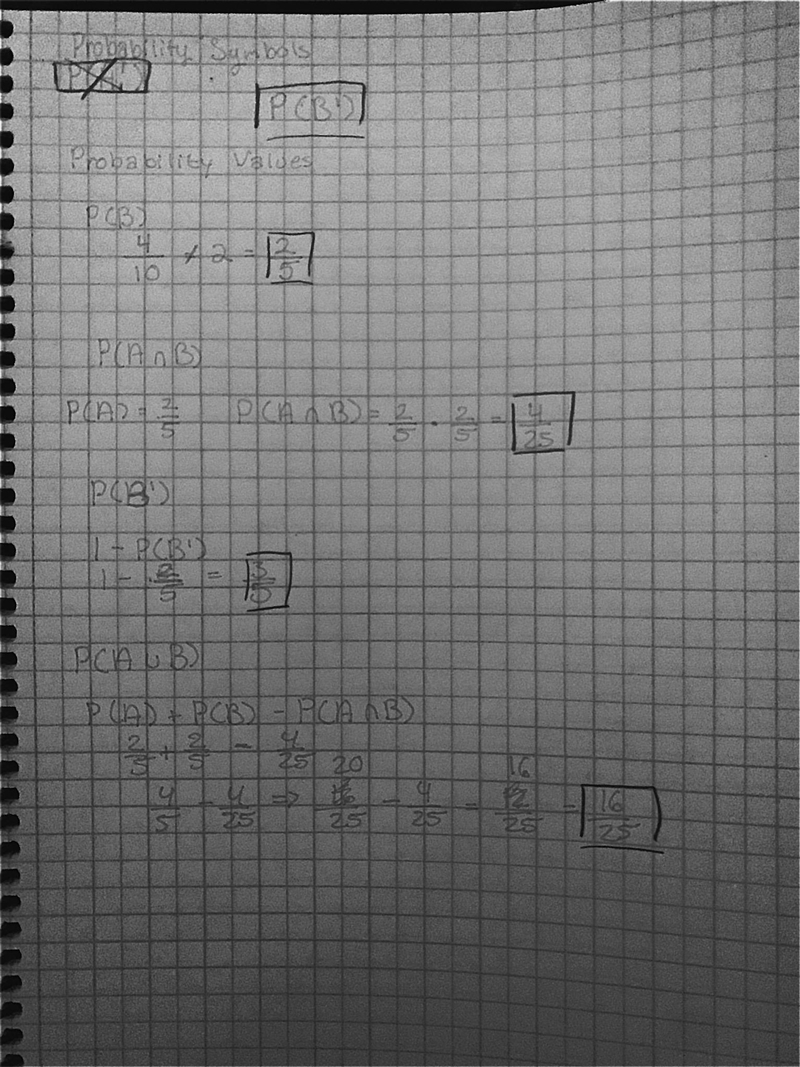 Probability Symbols
P(A')
P(B')
Probability Values
P(B)
4/10 / 2 = 2/5
P(A∩B)
P(A) = 2/5 P(A∩B) = 2/5 · 2/5 = 4/25
P(B')
1 - P(B')
1 - 2/5 = 3/5
P(A∪B)
P(A) + P(B) - P(A∩B)
2/5 + 2/5 - 4/25
20 16
4/5 - 4/25 => /25 - 4/25 = 12/25 = 16/25